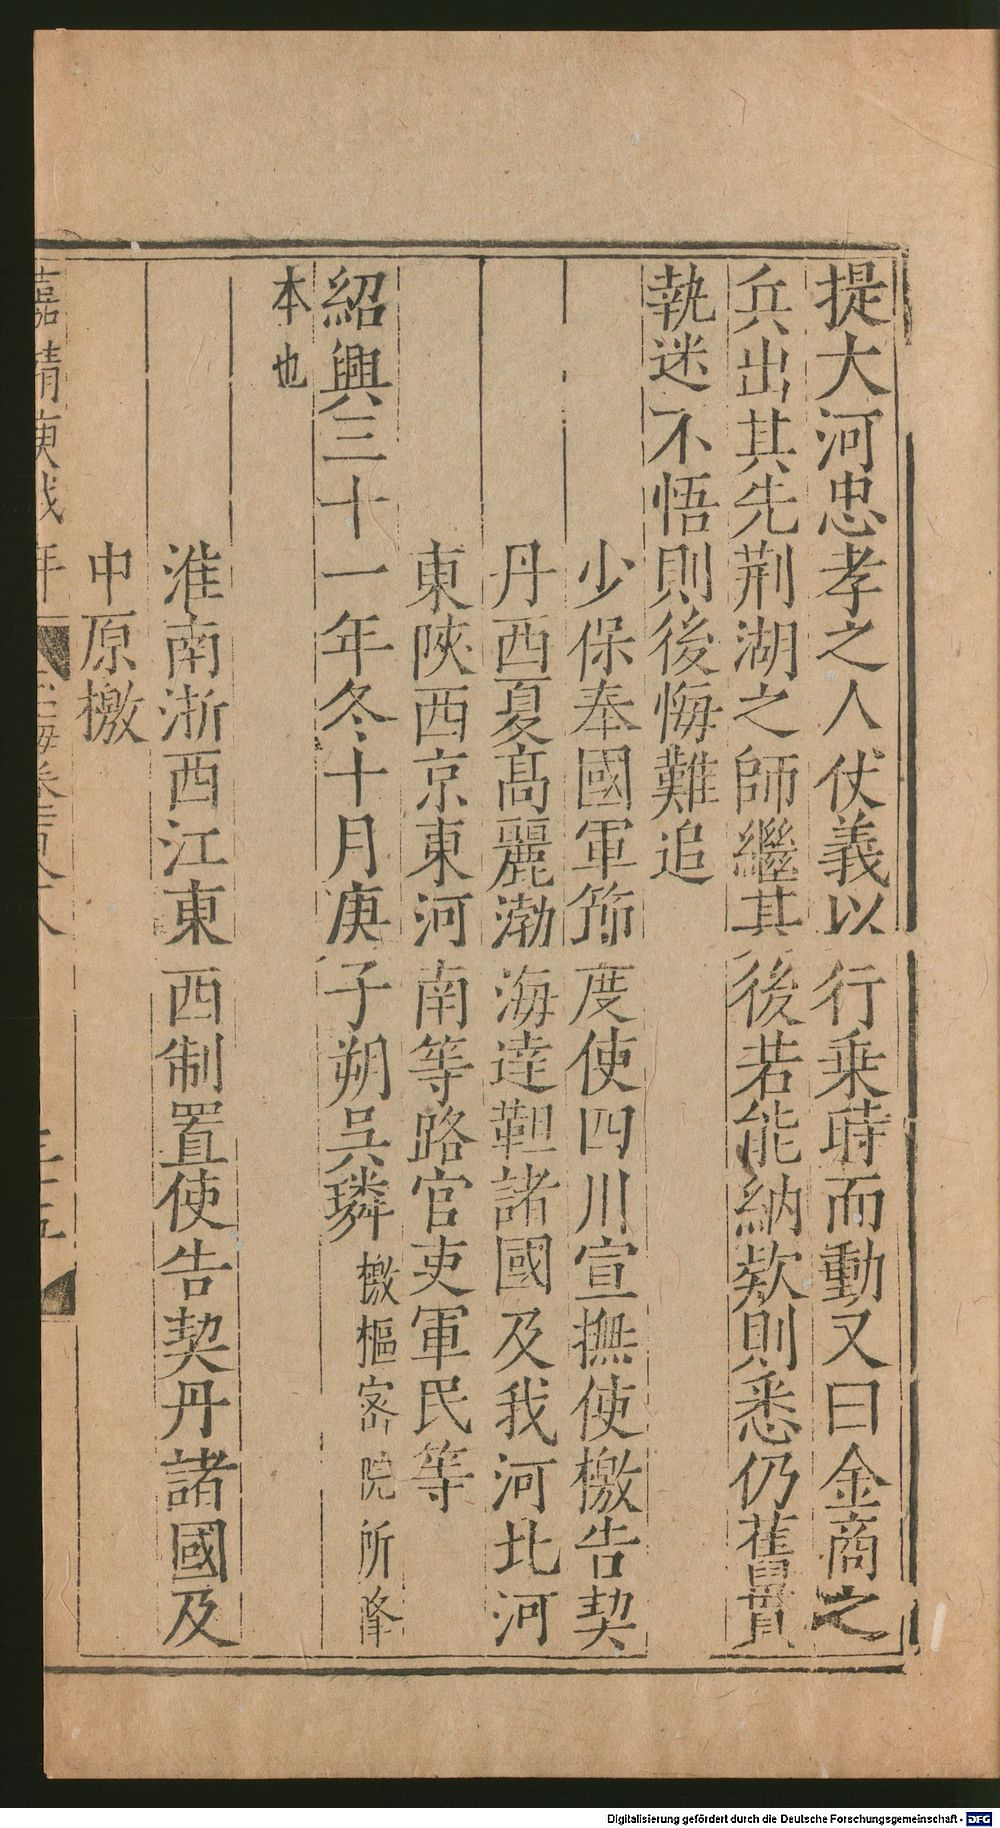 提大河忠孝之人伏義以行乗時而動又曰金商之
兵出其先荆湖之師繼其後若能納欵則悉仍舊貫
執迷不悟則後悔難追
少保奉國軍節度使四川宣撫使檄告契
丹西夏髙麗渤海達靼諸國及我河北河
東陝西京東河南等路官吏軍民等
紹興三十一年冬十月庚子朔呉璘檄樞宻院所降
本也
淮南浙西江東西制置使告契丹諸國及
中原檄
嘉靖庚戌年
Digitalisierung gefördert durch die Deutsche Forschungsgemeinschaft - DFG